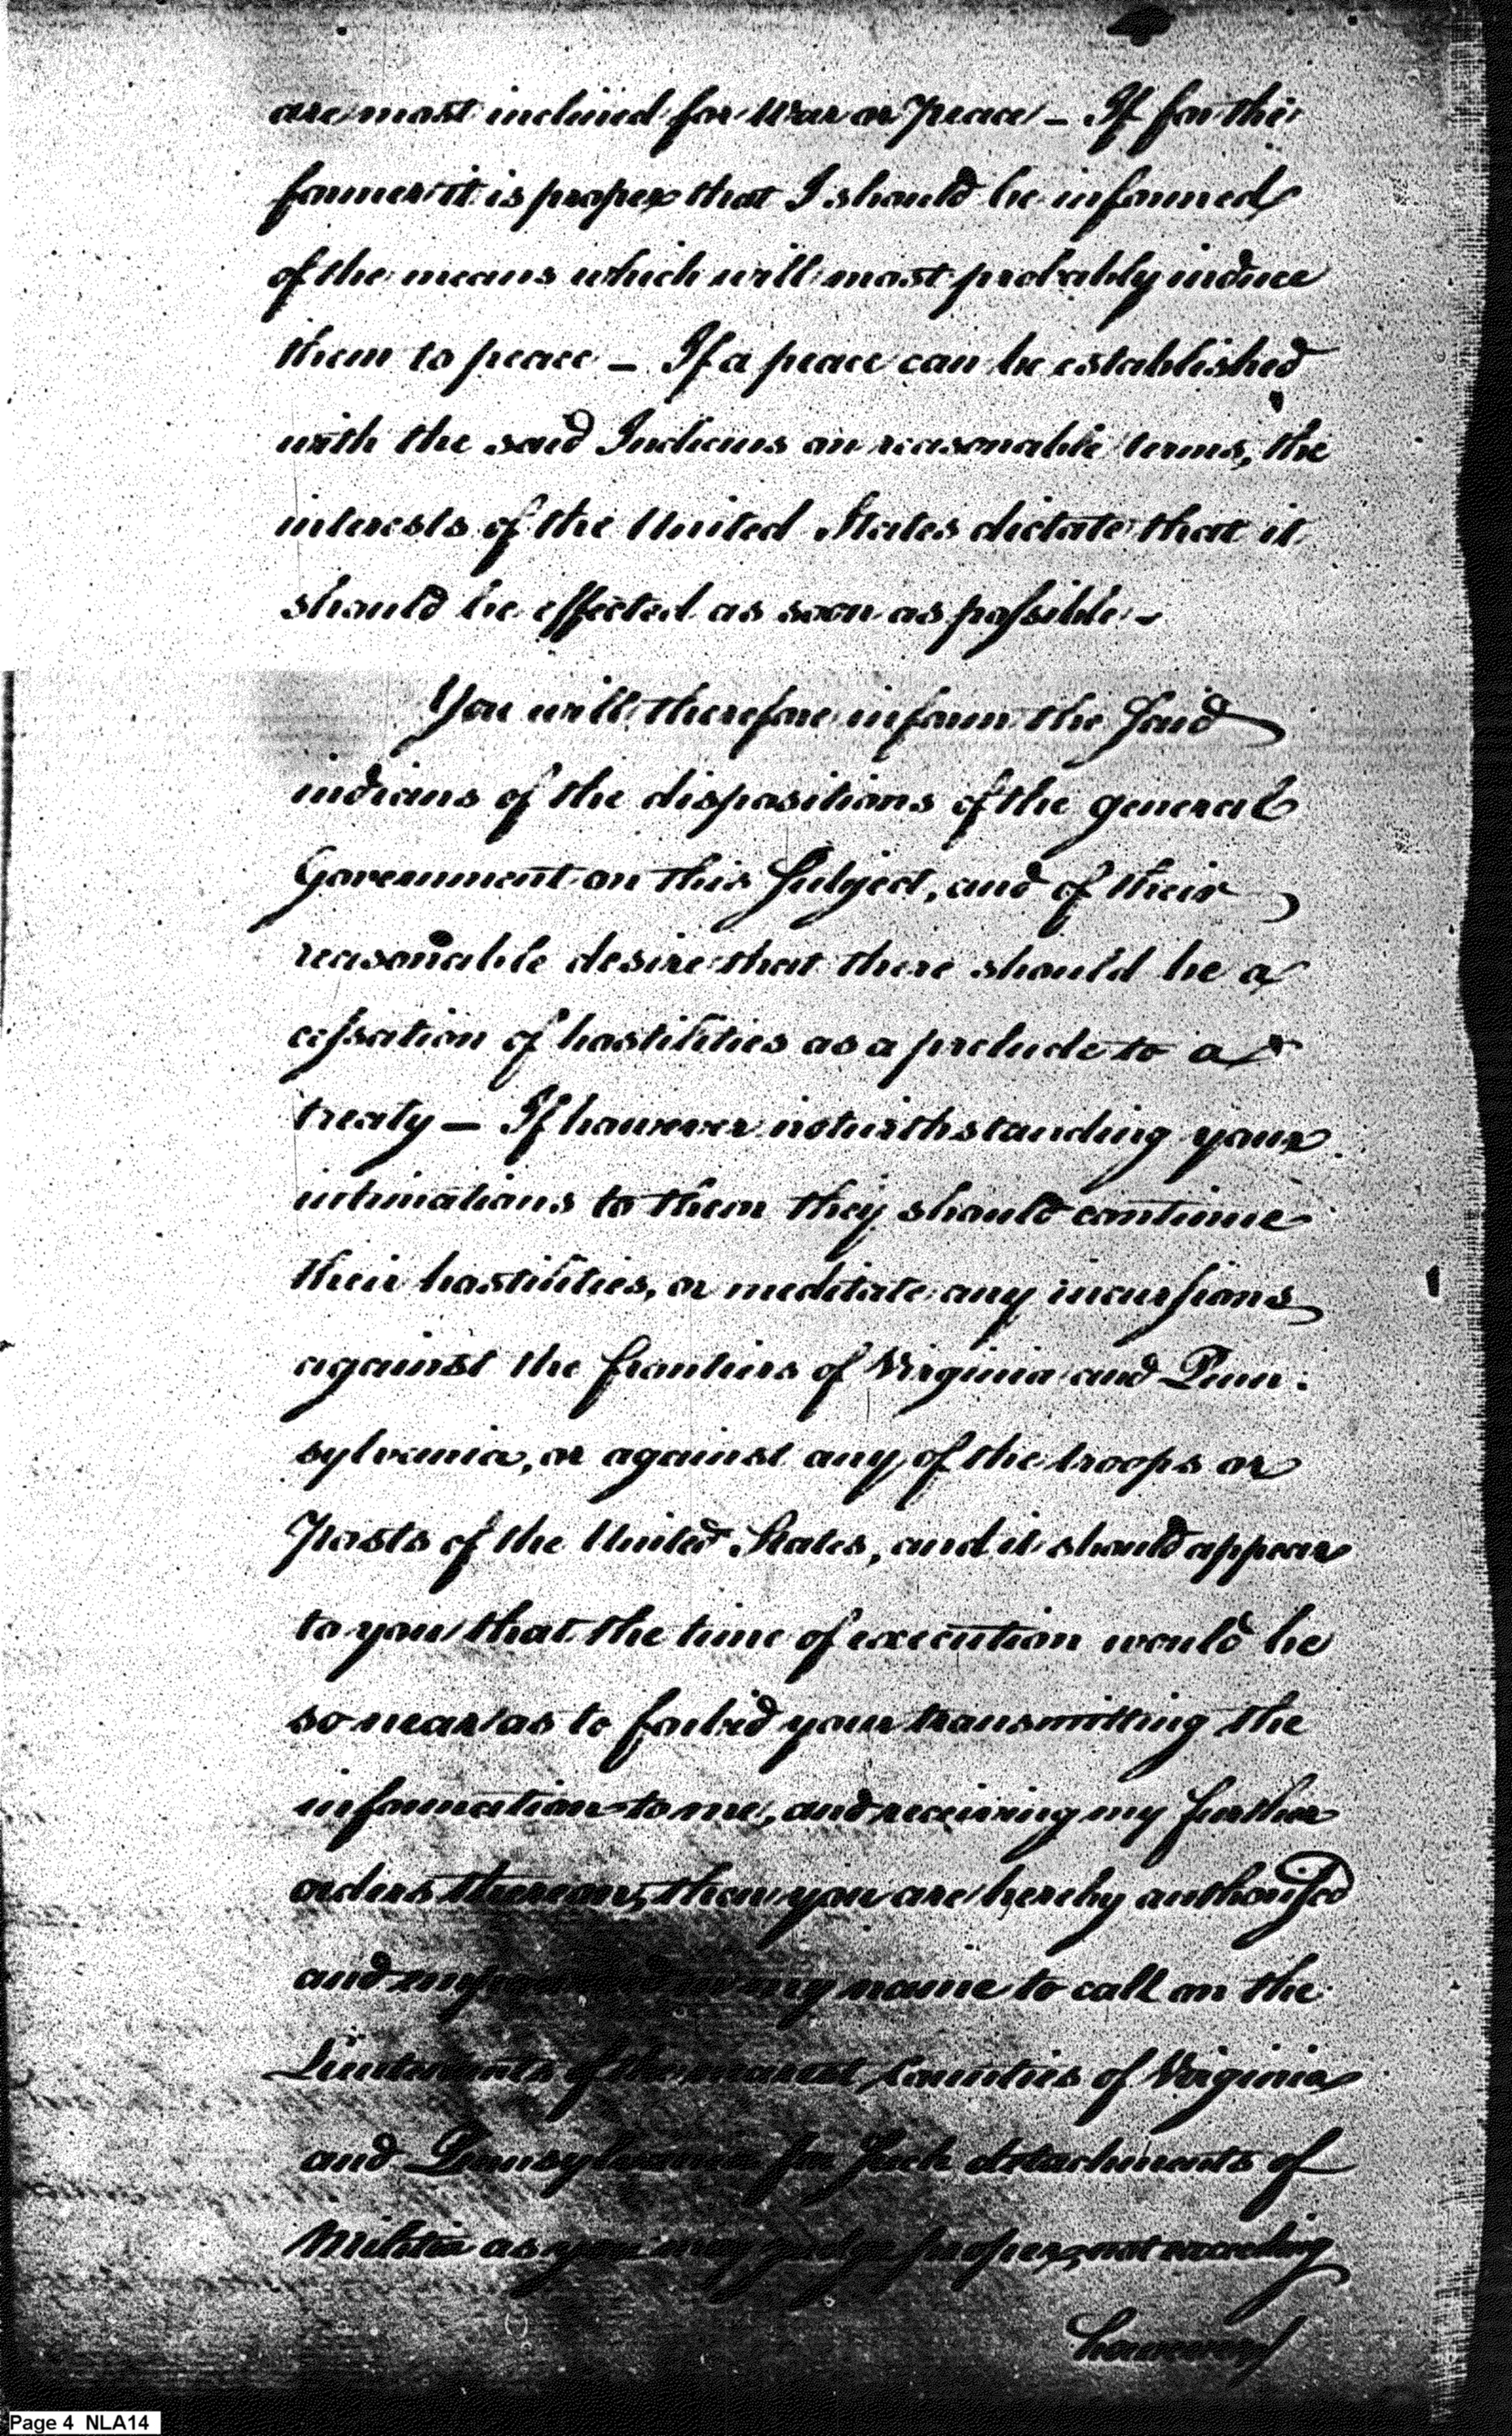 are most inclined for War or Peace — If for the
former it is proper that I should be informed
of the means which will most probably induce
them to peace — If a peace can be established
with the said Indians on reasonable terms, the
interests of the United States dictate that it
should be effected as soon as possible —
You will therefore inform the said
indians of the dispositions of the general
Government on this Subject, and of their
reasonable desire that there should be a
cessation of hostilities as a prelude to a
treaty — If however notwithstanding your
intimations to them they should continue
their hostilities, or meditate any incursions
against the frontiers of Virginia and Penn:
sylvania, or against any of the troops or
Posts of the United States, and it should appear
to you that the time of execution would be
so near as to forbid your transmitting the
information to me, and receiving my further
orders thereon, then you are hereby authorised
and empowered in my name to call on the
Lieutenants of the nearest Counties of Virginia
and Pennsylvania for such detachments of
Militia as you may judge proper, not exceeding
however
Page 4 NLA14